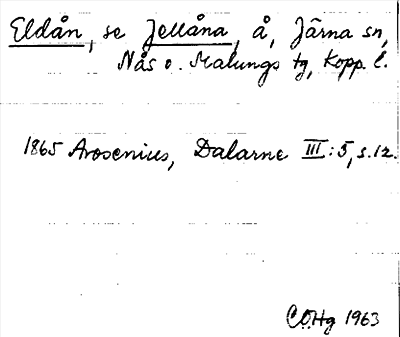 Eldån, se Jellåna, å, Järna sn,
Nås o. Malungs tg, Kopp. l.
1865 Arosenius, Dalarne III:5, s.12.
CÖHg 1963